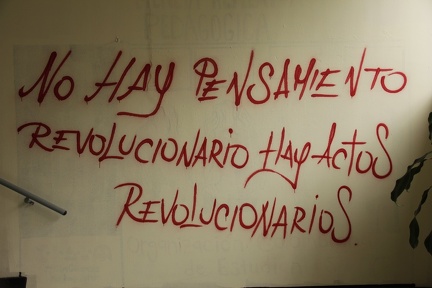 No HAY PENSAMIENTO
REVOLUCIONARIO HAY ACTOS
REVOLUCIONARIOS.